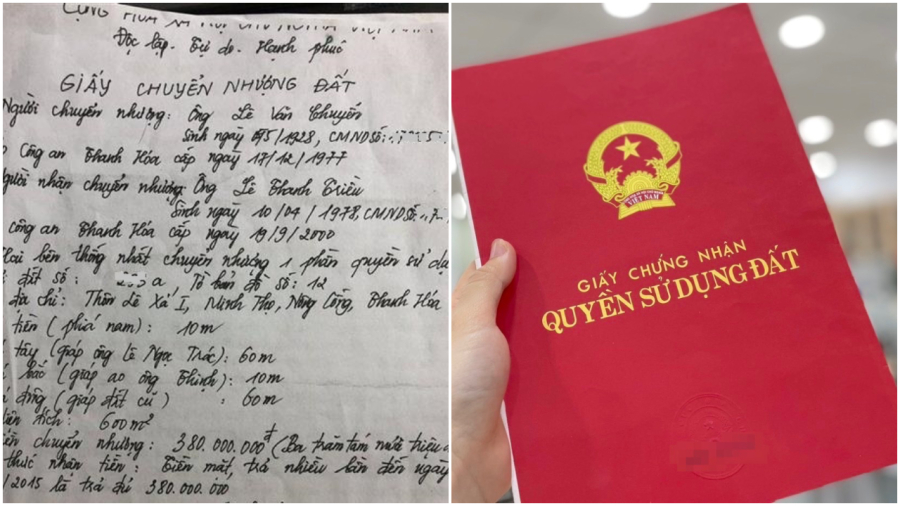 CỘNG HÒA XÃ HỘI CHỦ NGHĨA VIỆT NAM
Độc lập - Tự do - Hạnh phúc
GIẤY CHUYỂN NHƯỢNG ĐẤT
Người chuyển nhượng: Ông Lê Văn Chuyến
Sinh ngày 075/1928, CMND Số:
Công an Thanh Hóa cấp ngày 17/12/1977
Người nhận chuyển nhượng: Ông Lê Thanh Triều
Sinh ngày 10/04/1978, CMND Số:
công an Thanh Hóa cấp ngày 19/9/2000
Hai bên thống nhất chuyển nhượng 1 phần quyền sử dụ
đất số: a, Tờ bản đồ số: 12
địa chỉ: Thôn Lê Xá I, Minh Thọ, Nông Cống, Thanh Hóa
tiền (phía nam): 10m
tây (giáp ông Lê Ngọc Trác): 60m
bắc (giáp ao ông Thịnh): 10m
đông (giáp đất cũ) : 60m
tích: 600m²
chuyển nhượng: 380.000.000đ (Ba trăm tám mươi triệu
thức nhận tiền: Tiền mặt, trả nhiều lần đến ngày
/2015 là trả đủ 380.000.000
VIỆT NAM
GIẤY CHỨNG NHẬN
QUYỀN SỬ DỤNG ĐẤT